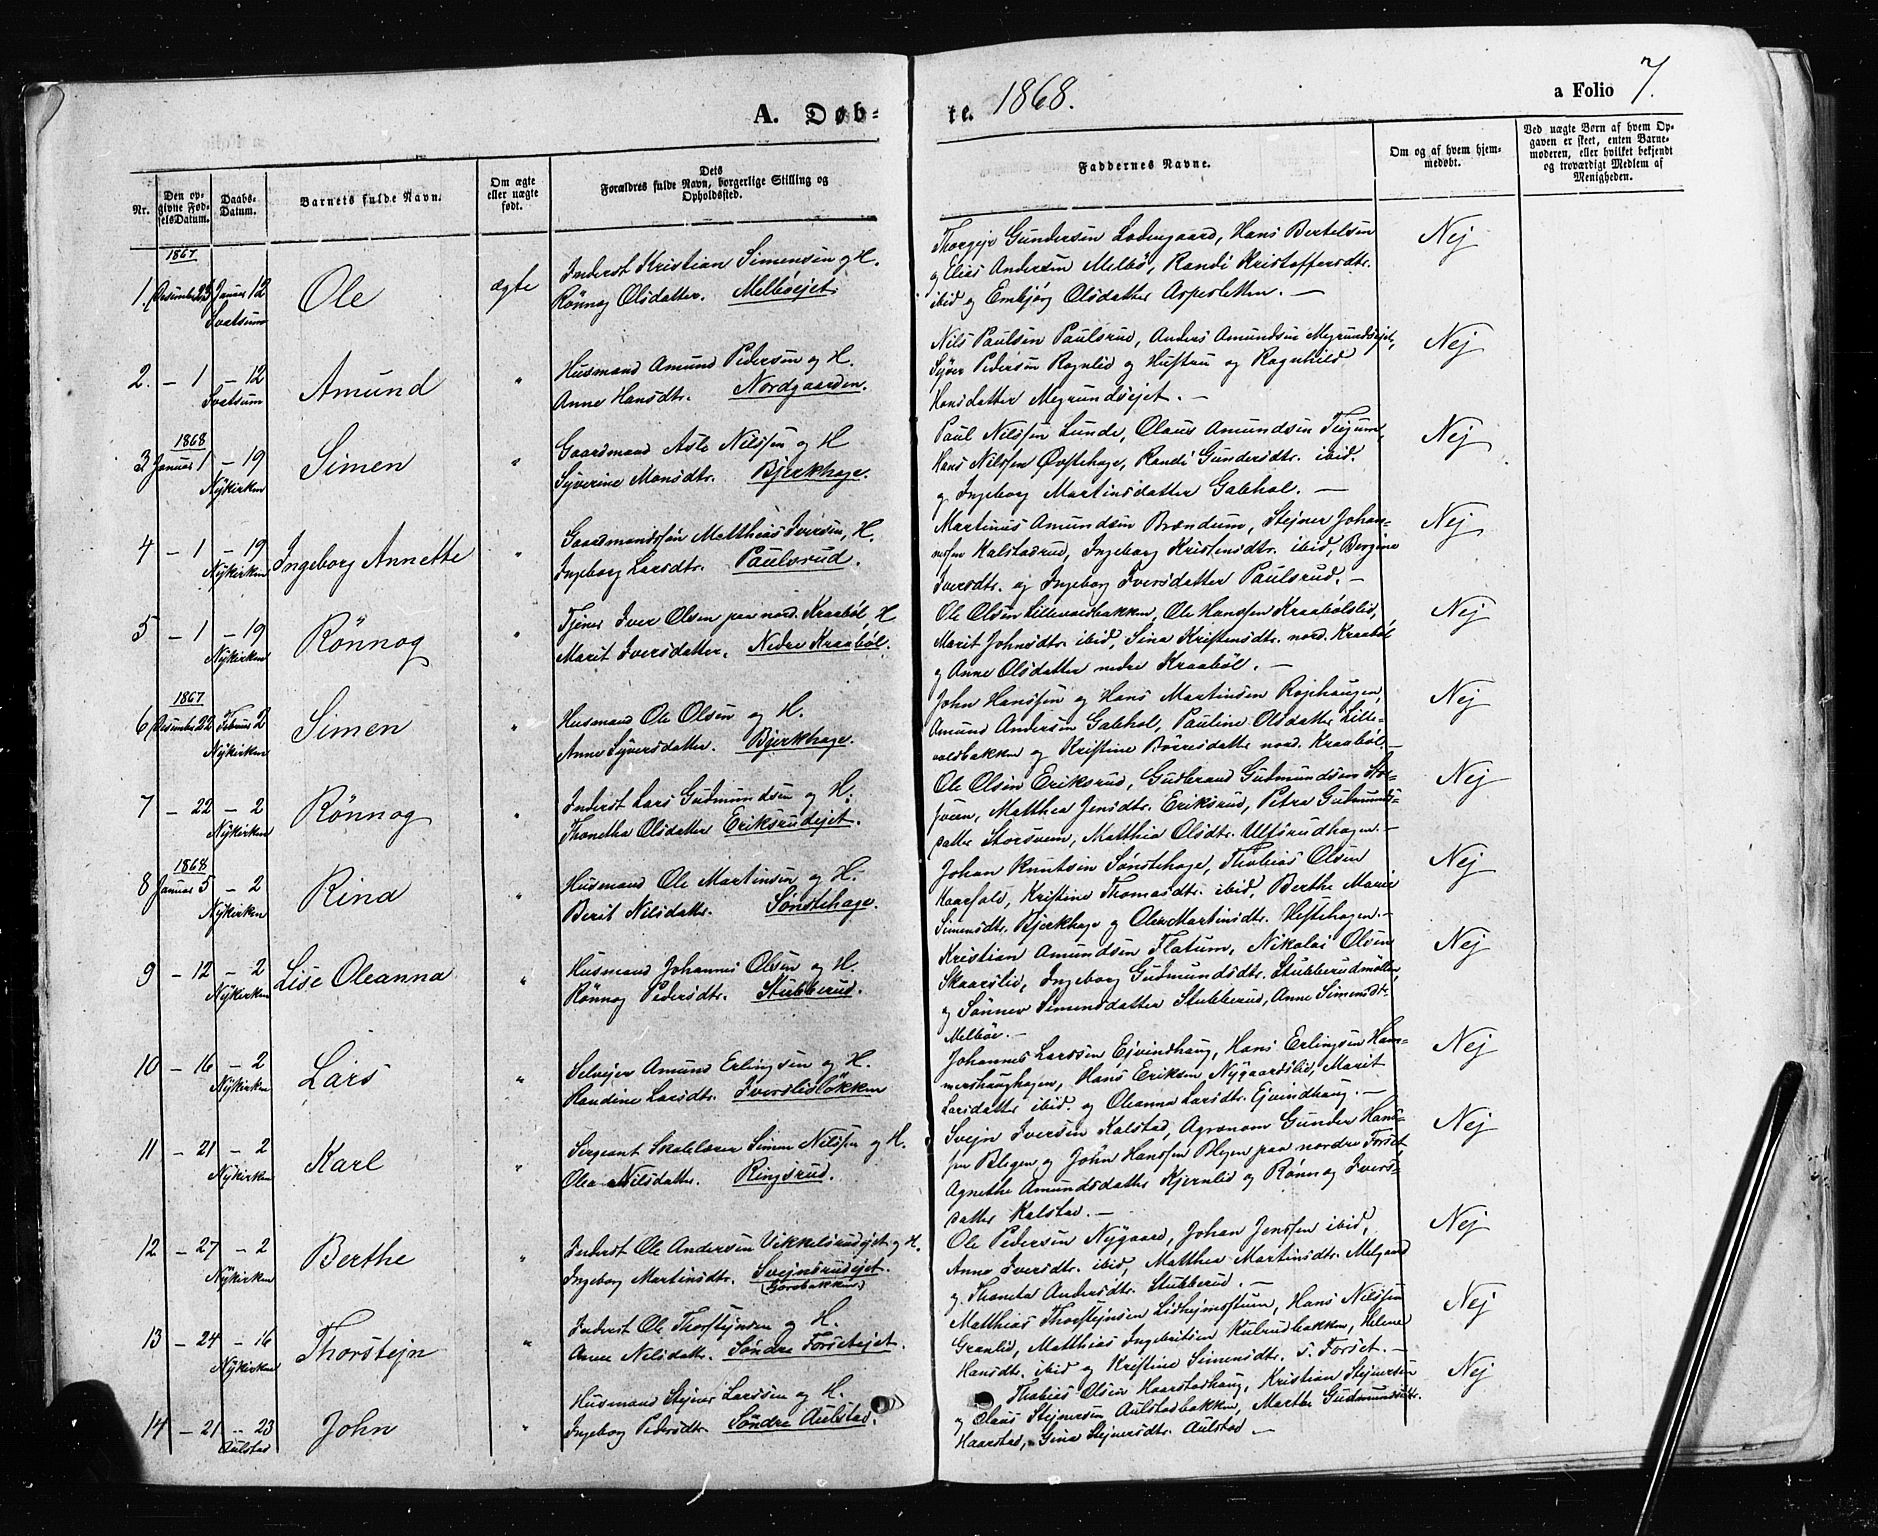 A. Døbte. 1868. a Folio 7.
Nr. | Den opgivne Fødsels Datum. | Daabs-Datum. | Barnets fulde Navn. | Om ægte eller uægte født. | Dets Forældres fulde Navn, borgerlige Stilling og Opholdssted. | Faddernes Navne. | Om og af hvem hjemmedøbt. | Ved uægte Børn af hvem Opgaven er skeet, enten Barnemoderen, eller hvilket bekjendt og troværdigt Medlem af Menigheden.
1867
1. Desember 23 Januar 12 Svatsum
Ole
ægte
Inderst Kristian Simensen og H.
Rönnog Olsdatter. Melböejet.
Thorgejr Gundersen Lodengaard, Hans Bertelsen
og Elias Andersen Melbö, Randi Kristoffersdtr.
ibid og Embjörg Olsdatter Aspesletten. —
Nej
2. — 1 — 12 Svatsum
Amund
"
Husmand Amund Pedersen og H.
Anne Hansdtr. Nordgaarden.
Nils Paulsen Paulsrud, Anders Amundsen Megrundsejet,
Syver Pedersen Rognlid og Hustru og Ragnhild
Hansdatter Megrundsejet. —
Nej
1868
3 Januar 1 — 19 Nykirken
Simen
"
Gaardmand Asle Nilssen og H
Syverine Monsdtr. Bjerkhage.
Paul Nilssen Lunde, Olaus Amundsen
Hans Nilssen Øvstehage, Randi Gundersdtr. ibid.
og Ingeborg Martinsdatter Galhol. —
Nej
4 — 1 — 19 Nykirken
Ingeborg Annette
"
Gaardmandssøn Matthias Iversen, H.
Ingeborg Larsdtr. Paulsrud.
Martinus Amundsen Brændum, Stejner Johan-
nesen Kalstadrud, Ingeborg Kristensdtr. ibid, Bergine
Iversdtr. og Ingeborg Iversdatter Paulsrud. —
Nej
5 — 1 — 19 Nykirken
Rönnog
"
Tjener Iver Olsen paa nord. Kraaböl, H
Marit Iversdatter. Nedre Kraaböl.
Ole Olsen Lillevoldbakken, Ole Hanssen Kraabölslid,
Marit Johnsdtr. ibid, Sina Kristensdtr. nord. Kraaböl
og Anne Olsdatter nedre Kraaböl. —
Nej
1867
6 Desember 22 Februar 2 Nykirken
Simen
"
Husmand Ole Olsen og H.
Anne Syversdatter. Bjerkhage.
John Hanssen og Hans Martinsen Röjehaugen,
Amund Andersen Galhol, Pauline Olsdatter Lille-
voldbakken og Kristine Börresdatter nord. Kraaböl. —
Nej
7 — 22 — 2 Nykirken
Rönnog
"
Inderst Lars Gudmundsen og H.
Thonetha Olsdatter Eriksrudejet.
Ole Olsen Eriksrud, Gudbrand Gudmundsen Stor-
sveen, Matthea Jensdtr. Eriksrud, Petra Gudmunds-
datter Storsveen, Matthia Olsdtr. Ulfsrudhagen. —
Nej
1868
8 Januar 5 — 2 Nykirken
Rina
"
Husmand Ole Martinsen og H.
Berit Nilsdatter. Sönstehage.
Johan Knutsen Sönstehage, Thobias Olsen
Kristine Thomasdtr. ibid, Berthe Marie
Simensdtr. Bjerkhage og Olea Martinsdtr. Heftehagen. —
Nej
9 — 12 — 2 Nykirken
Lise Oleanna
"
Husmand Johannes Olsen og H.
Rönnog Pedersdtr. Stubberud.
Kristian Amundsen Flatum, Nikolai Olsen
Skaarslid, Ingeborg Gudmundsdtr. Stubberudmöllen,
og Sönnev Simensdatter Stubberud, Anne Simensdtr.
Melböe. —
Nej
10 — 16 — 2 Nykirken
Lars
"
Selvejer Amund Erlingsen og H.
Handine Larsdtr. Iverslidlökken
Johannes Larssen Ejvindhaug, Hans Erlingsen Ham-
mershaughagen, Hans Eriksen Nygaardslid, Marit
Larsdatter ibid. og Oleanna Larsdtr. Ejvindhaug. —
Nej
11 — 21 — 2 Nykirken
Karl
"
Sergeant Skolelærer Simen Nilssen og H.
Olea Nilsdatter. Ringsrud.
Svejn Iversen Kalstad, Agronom Gunder Hans-
sen Blegen og John Hanssen Blegen paa nordre Forset
Agnethe Amundsdatter Kjernlid og Rönnog Ivers-
datter Kalstad. —
Nej
12 — 27 — 2 Nykirken
Berthe
"
Inderst Ole Andersen Vikkelsrudejet og H.
Ingeborg Martinsdtr. Svejnsrudejet.
Ole Pedersen Nygaard, Johan Jenssen ibid,
Anne Iversdtr. ibid, Matthea Martinsdtr. Melgaard
og Thoneta Andersdtr. Stubberud. —
Nej
13 — 24 — 16 Nykirken
Thorstejn
"
Inderst Ole Thorstejnsen og H.
Anne Nilsdatter. Söndre Forsetejet.
Matthias Thorstejnsen Hans Nilssen
Granlid, Matthias Ingebritsen Kulrudbakken, Helene
Hansdtr. ibid og Kristine Simensdtr. s. Forset. —
Nej
14 — 21 — 23 Aulstad
John
"
Husmand Stejner Larssen og H.
Ingeborg Pedersdtr. Söndre Aulstad.
Thobias Olsen Haarstadhaug, Kristian Stejnersen
og Olaus Stejnersen Aulstadbakken, Marthe Gudmundsdtr.
Haarstad, Gina Stejnersdtr. Aulstad —
Nej